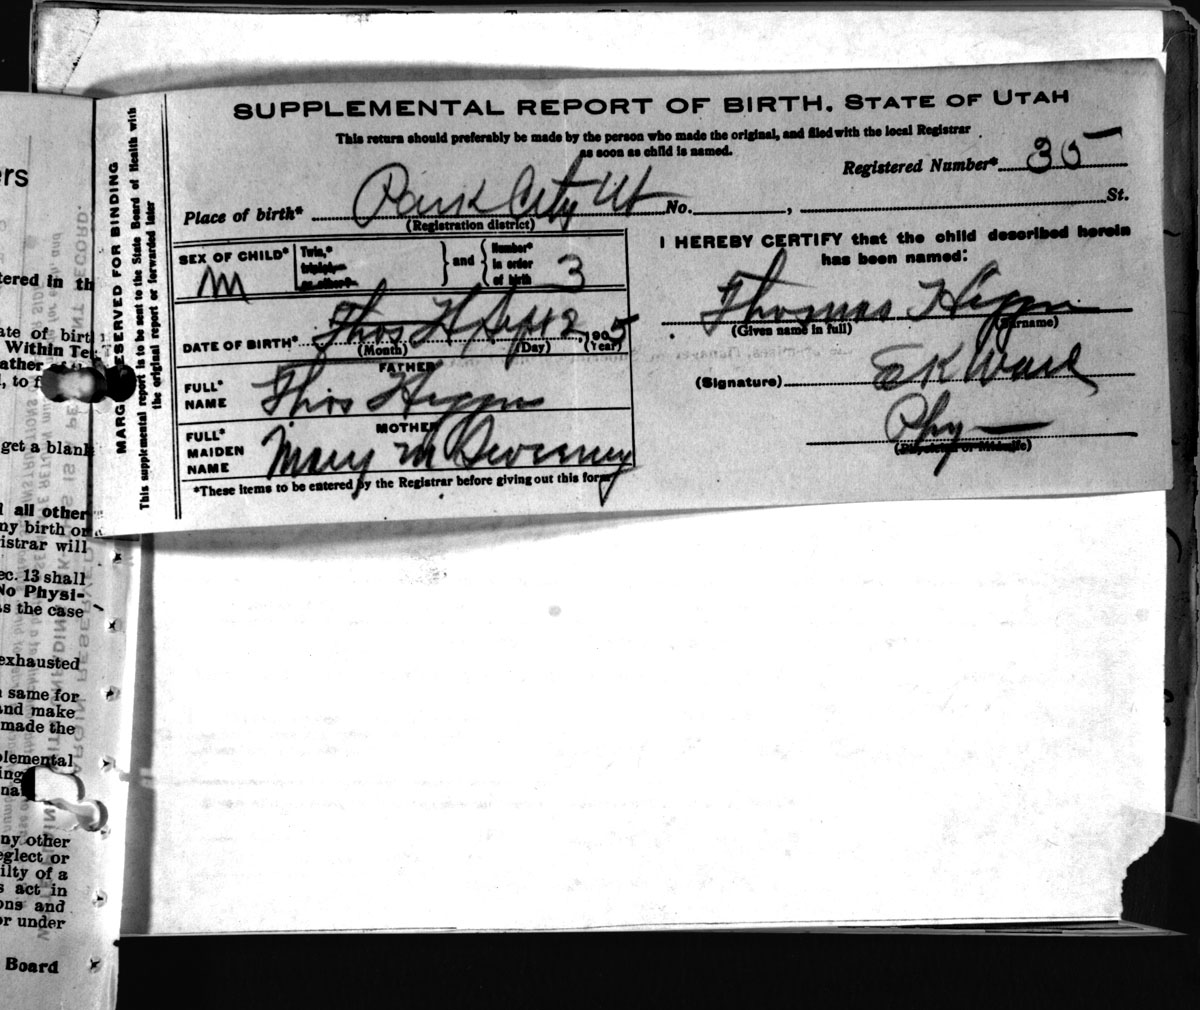 SUPPLEMENTAL REPORT OF BIRTH. STATE OF UTAH
This return should preferably be made by the person who made the original, and filed with the local Registrar
as soon as child is named.
Registered Number* 35
Place of birth* Park City Ut No. , St.
(Registration district)
SEX OF CHILD* M
Twin,*
triplet
or other*
and
Number*
in order
of birth 3
DATE OF BIRTH* Thos H Sept 2, 1905
(Month) (Day) (Year)
FATHER
FULL*
NAME Thos
MOTHER
FULL*
MAIDEN
NAME Mary M Sweeney
*These items to be entered by the Registrar before giving out this form
I HEREBY CERTIFY that the child described herein
has been named:
Thomas
(Given name in full) (Surname)
(Signature) E K Ward
Phy
(Physician or Midwife)
MARGIN RESERVED FOR BINDING
This supplemental report to be sent to the State Board of Health with
the original report or forwarded later
ers
tered in th
ate of birth
Within Te
ather
, to f
get a blank
all other
ny birth or
istrar will
ec. 13 shall
No Physi-
as the case
exhausted
same for
and make
made the
plemental
ing
na
ny other
eglect or
ilty of a
s act in
ons and
or under
Board